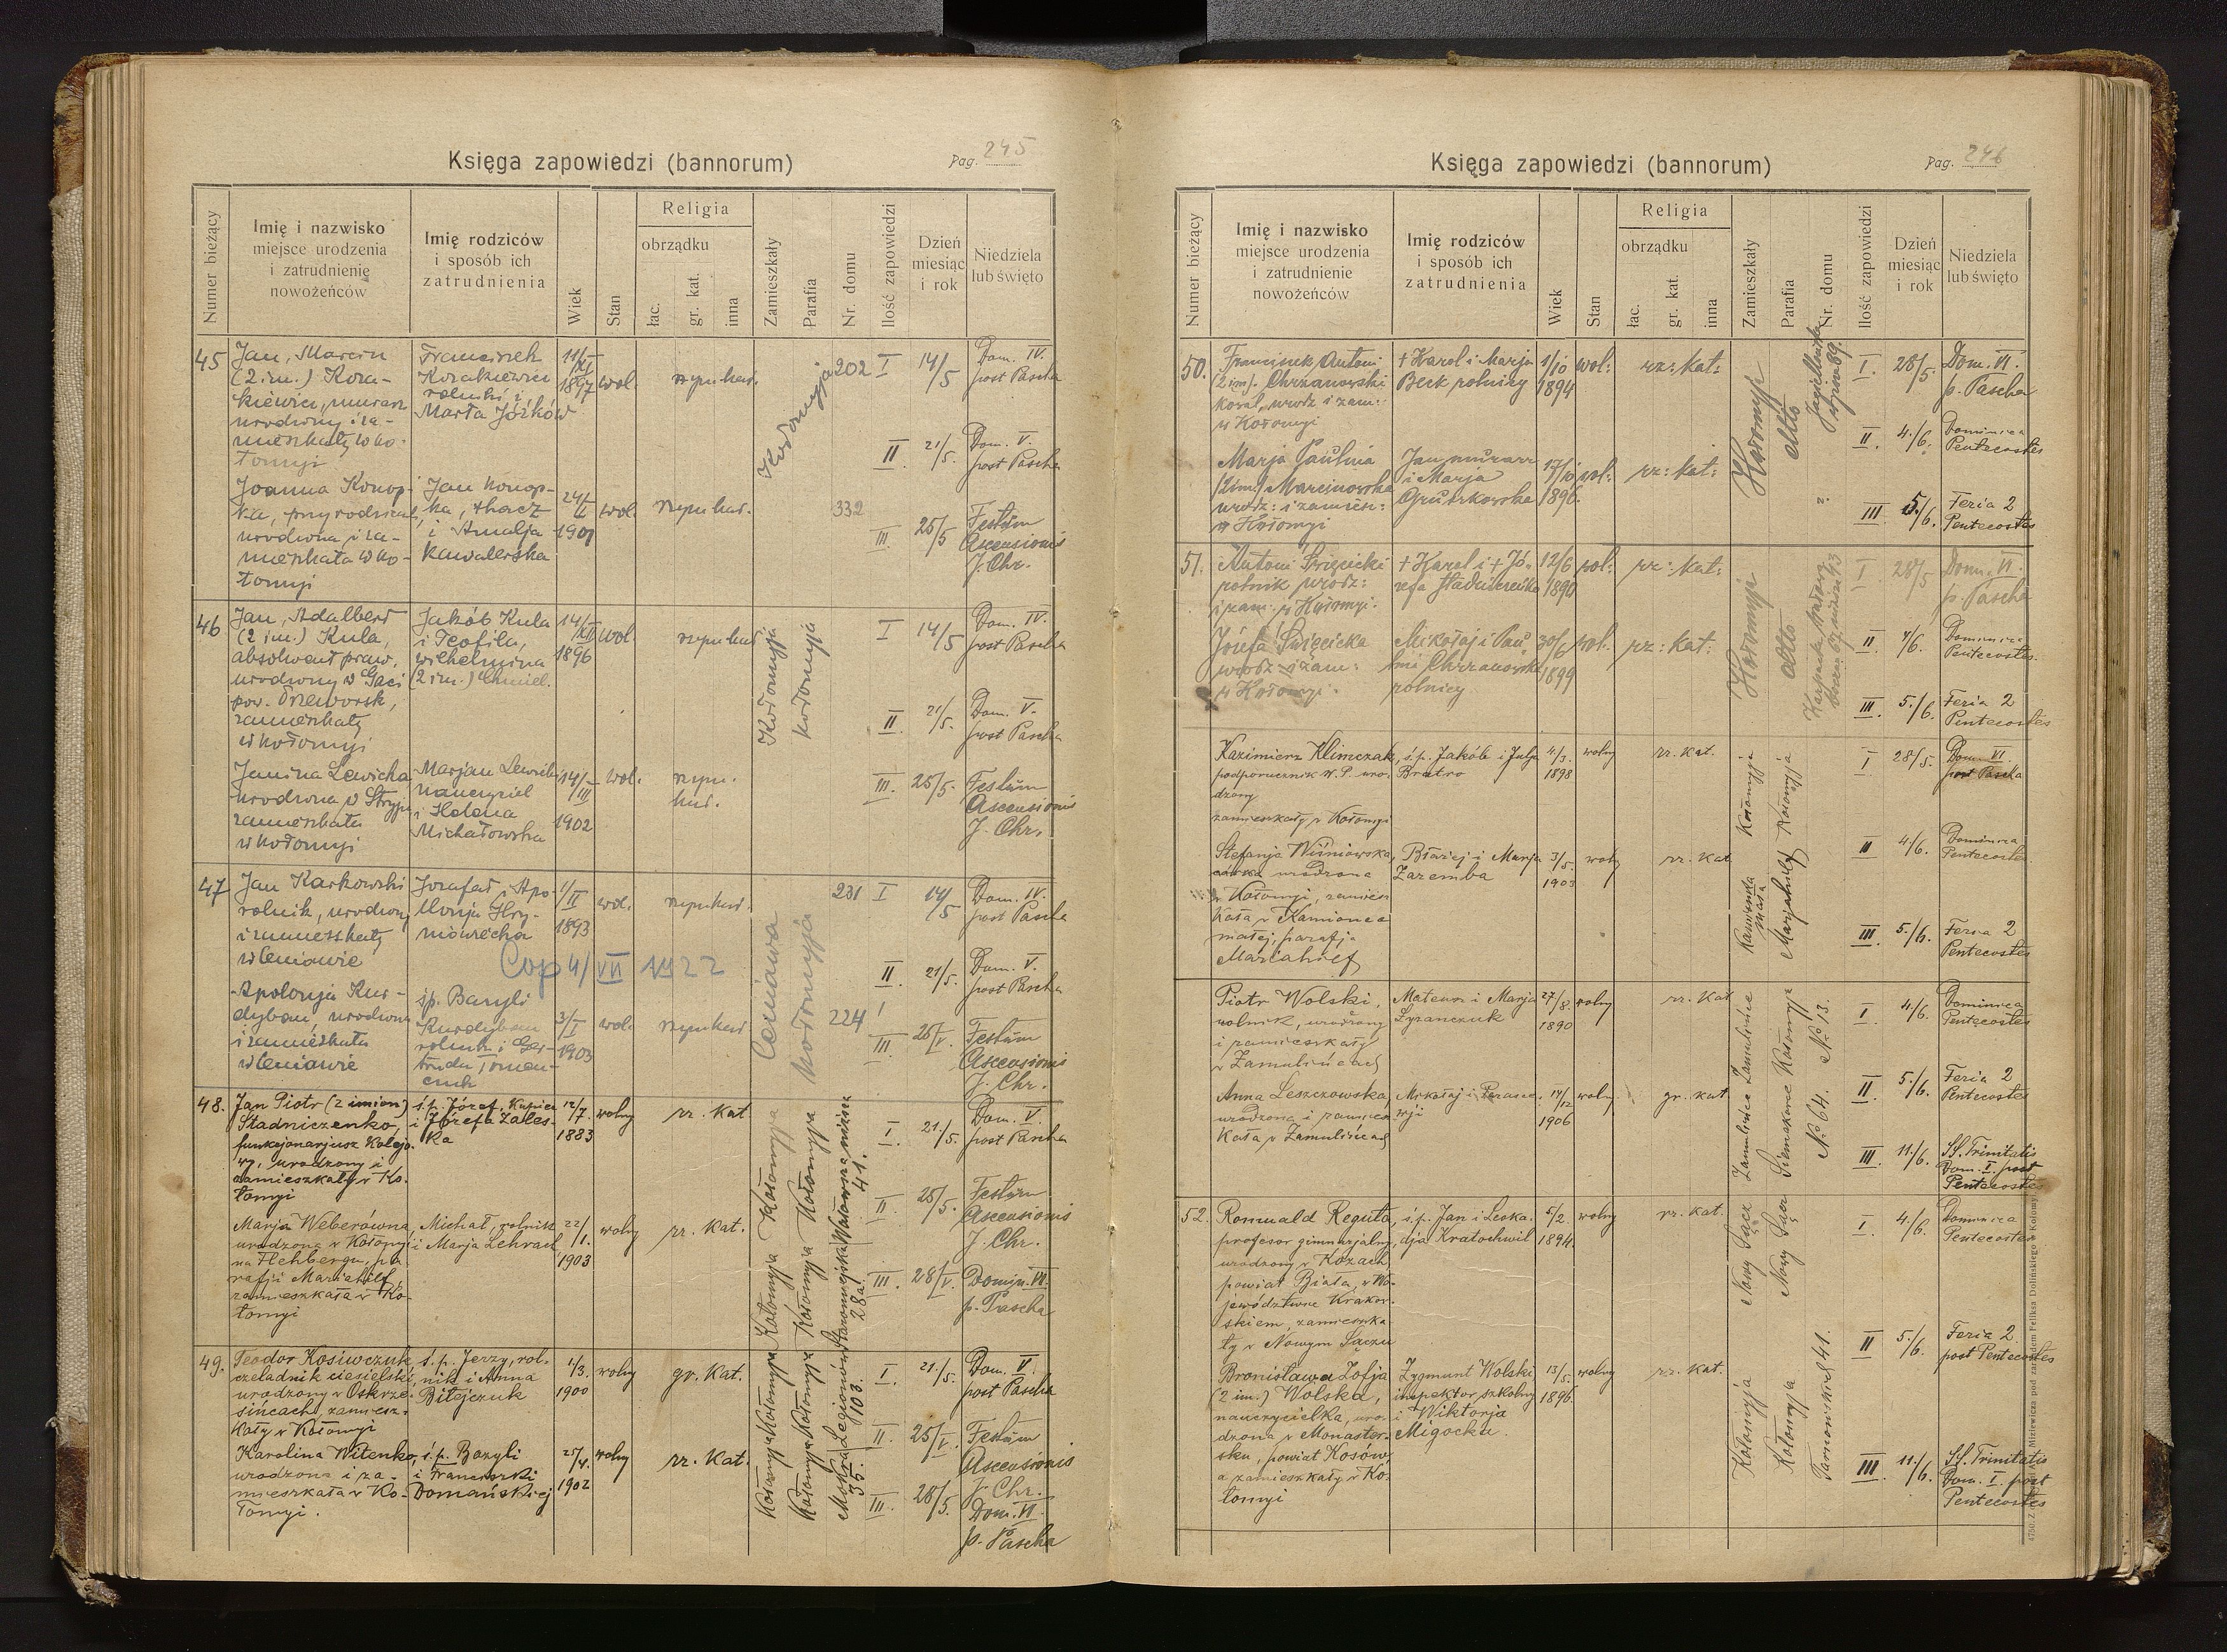 Księga zapowiedzi (bannorum)
Pag. 245
Numer bieżący
Imię i nazwisko
miejsce urodzenia
i zatrudnienie
nowożeńców
Imię rodziców
i sposób ich
zatrudnienia
Wiek
Stan
Religia
obrządku
łac.
gr. kat.
inna
Zamieszkały
Parafia
Nr. domu
Ilość zapowiedzi
Dzień
miesiąc
i rok
Niedziela
lub święto
45
Jan, Marcin
(2 im.) Kora-
kiewicz, murarz
urodzony i za-
mieszkały w Ko-
łomyji
Franciszek
Korakiewicz
rolnik i
Marta Józków
11/XI
1897
wol.
rzym kat.
Kołomyja
202
I
14/5
Dom. IV.
post Pascha
II.
21/5.
Dom. V.
post Pascha
Joanna Konop-
ka, przyrodnica,
urodzona i za-
mieszkała w Ko-
łomyji
Jan Konop-
ka, tkacz
i Amalja
Kawalerska
24/
1901
wol.
rzym kat.
332
III.
25/5
Festum
Ascensionis
J. Chr.
46
Jan, Adalbert
(2 im.) Kula,
absolwent praw,
urodzony w Gaci
pow. Przeworsk,
zamieszkały
w Kołomyji
Jakób Kula
i Teofila,
Wilhelmina
(2 im.) Chmiel.
14/XII
1896
wol.
rzym kat
Kołomyja
Kołomyja
I
14/5
Dom. IV.
post Pascha
II.
21/5.
Dom. V.
post Pascha
Janina Lewicka
urodzona w Stryju
zamieszkała
w Kołomyji
Marjan Lewicki
nauczyciel
i Helena
Michałowska
14/III
1902
wol.
rzym.
kat.
III.
25/5.
Festum
Ascensionis
J. Chr.
47
Jan Karkowski
rolnik, urodzony
i zamieszkały
w Ceniawie
Jozafat i Apo
lonja Hry-
niowiecka
1/II
1893
wol.
rzym kat.
Ceniawa
Kołomyja
231
I
14/5
Dom. IV.
post Pascha
Cop 4/VII 1922
II.
21/5.
Dom. V.
post Pascha
Apolonja Kur-
dyban, urodzona
i zamieszkała
w Ceniawie
śp. Bazyli
Kurdyban
rolnik i Ger-
truda Toman-
czuk
3/I
1903
wol.
rzym kat
224
III.
25/V.
Festum
Ascensionis
J. Chr.
48.
Jan Piotr (2 imion)
Stadniczenko,
funkcjonarjusz kolejo-
wy, urodzony i
zamieszkały w Ko-
łomyi
ś.p. Józef, Kupiec
i Józefa Zales-
ka
12/7.
1883
wolny
rz. kat.
Kołomyja
Kołomyja
41.
I.
21./5.
Dom. V.
post Pascha
II.
25/5.
Festum
Ascensionis
J. Chr.
Marja Weberówna
urodzona w Kołomyi
na Flehbergu, pa
rafji Mariahilf,
zamieszkała w Ko-
łomyi
Michał, rolnik
i Marja Lehrach
22/1.
1903
wolny
rz. kat.
Kołomyja
Kołomyja
Staromiejska
28a.
III.
28/V.
Domin. VI.
p. Pascha
49.
Teodor Kosiwczuk
czeladnik ciesielski,
urodzony w Oskrze-
sińcach, zamiesz-
kały w Kołomyi
ś.p. Jerzy, rol-
nik i Anna
Bitejczuk
1/3.
1900
wolny
gr. kat.
Kołomyja
Kołomyja
Legionów
103.
I.
21./5.
Dom. V
post Pascha
II.
25/V.
Festum
Ascensionis
J. Chr.
Karolina Witenko,
urodzona i za-
mieszkała w Ko-
łomyi.
ś.p. Bazyli
i Franciszki
Domańskiej
25/4.
1902
wolny
rz. kat.
Kołomyja
Kołomyja
Mokra
35.
III.
28/5.
Dom. VI
p. Pascha
Księga zapowiedzi (bannorum)
Pag. 246
Numer bieżący
Imię i nazwisko
miejsce urodzenia
i zatrudnienie
nowożeńców
Imię rodziców
i sposób ich
zatrudnienia
Wiek
Stan
Religia
obrządku
łac.
gr. kat.
inna
Zamieszkały
Parafia
Nr. domu
Ilość zapowiedzi
Dzień
miesiąc
i rok
Niedziela
lub święto
50.
Franciszek Antoni
(2 im). Chrzanowski
kowal, urodz i zam:
w Kołomyi
+ Karol i Marja
Beck rolnicy
1/10
1894
wol:
rz: kat:
Kołomyja
detto
I.
28/5.
Dom. VI.
p. Pascha
II.
4./6.
Dominica
Pentecostes
Marja Paulina
(2 im) Marcinowska
urodz: i zamiesz:
w Kołomyi
Jan murarz
i Marja
Gruszkowska
17/10
1896.
wol:
rz: kat:
?
III.
5./6.
Feria 2
Pentecostes
51.
Antoni Święcicki
rolnik urodz:
i zam: w Kołomyi.
+ Karol i + Jó-
zefa Stadniczenko
12/6
1890
wol:
rz: kat:
Kołomyja
detto
I
28/5
Dom. VI.
p. Pascha
Józefa Święcicka
urodz i zam:
w Kołomyi.
Mikołaj i Pau
lina Chrzanowska
rolnicy
30/6
1899
wol.
rz: kat:
II.
4/6.
Dominica
Pentecostes.
III.
5./6.
Feria 2
Pentecostes
Kazimierz Klimczak,
podporucznik W.P. uro-
dzony
zamieszkały w Kołomyi
ś.p. Jakób i Julja
Bratro
4./3.
1898
wolny
rz. kat.
Kołomyja
Kołomyja
I
28/5.
Dom. VI.
post Pascha
II
4/6.
Dominica
Pentecostes.
Stefanja Wiśniowska,
urodzona
w Kołomyi, zamiesz
kała w Kamionce
małej, parafja
Mariahilf
Błażej i Marja
Zaremba
3/5.
1903
wolny
rz. kat
Kamionka
Mała
Marjahilf
III.
5./6.
Feria 2
Pentecostes
Piotr Wolski,
rolnik, urodzony
i zamieszkały
w Zamulińcach
Mateusz i Marja
Łyzanczuk
27/8.
1890
wolny
rz. kat
Zamulińce
Kołomyja
No. 13.
I.
4/6.
Dominica
Pentecostes
II.
5./6.
Feria 2
Pentecostes
Anna Leszczowska,
urodzona i zamiesz
kała w Zamulińcach
Mikołaj i Parasce-
wji
14/12
1906
wolny
gr. kat
Zamulińce
Siemakowce
No 64.
III.
11./6.
SS. Trinitatis
Dom. I. post
Pentecostes
52.
Romuald Reguła,
profesor gimnazjalny,
urodzony w Kozach,
powiat Biała, w Wo-
jewództwie Krakow-
skiem, zamieszka
ły w Nowym Sączu
ś.p. Jan i Leoka-
dja Kratochwil
5/2.
1894.
wolny
rz. kat.
Nowy Sącz
Nowy Sącz
I.
4./6.
Dominica
Pentecostes
II
5./6.
Feria 2.
post Pentecostes
Bronisława Zofja
(2 im.) Wolska,
nauczycielka, uro-
dzona w Monaster-
sku, powiat Kosów,
a zamieszkały w Ko-
łomyi
Zygmunt Wolski,
inspektor szkolny
i Wiktorja
Migocka.
13/5.
1896.
wolny
rz. kat.
Kołomyja
Kołomyja
Tarnowskich 41.
III.
11./6.
SS. Trinitatis
Dom. I. post
Pentecostes